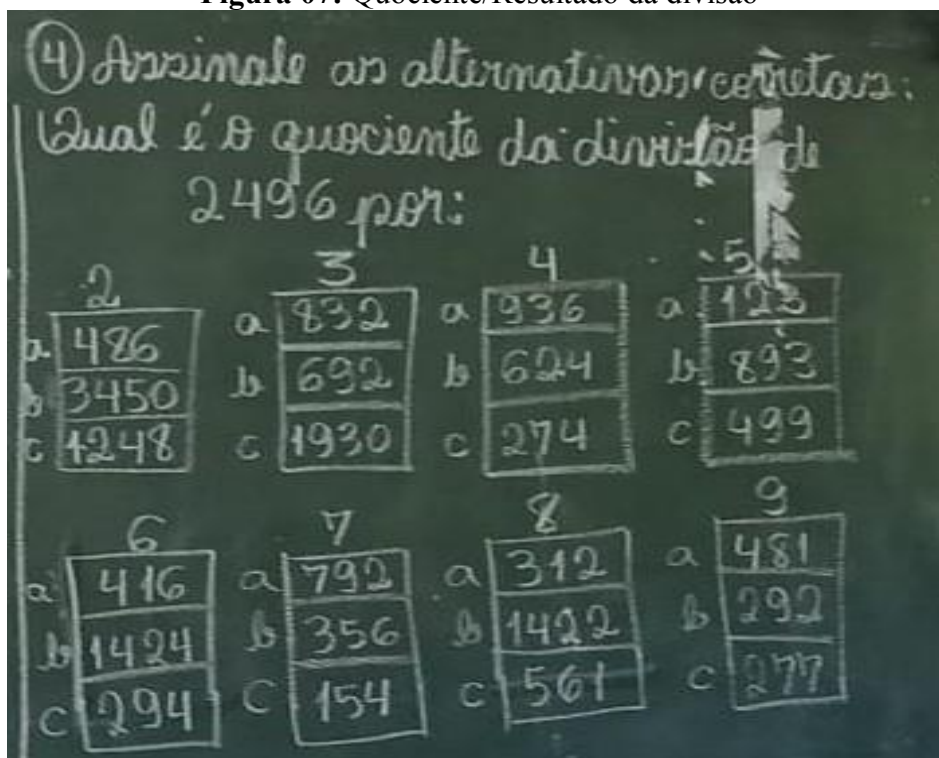 Figura 07: Quociente/Resultado da divisão
4 Assinale as alternativas corretas:
Qual é o quociente da divisão de
2496 por:
2
a 486
b 3450
c 1248
3
a 832
b 692
c 1930
4
a 936
b 624
c 274
5
a 123
b 893
c 499
6
a 416
b 1424
c 294
7
a 792
b 356
c 154
8
a 312
b 1422
c 561
9
a 481
b 292
c 277